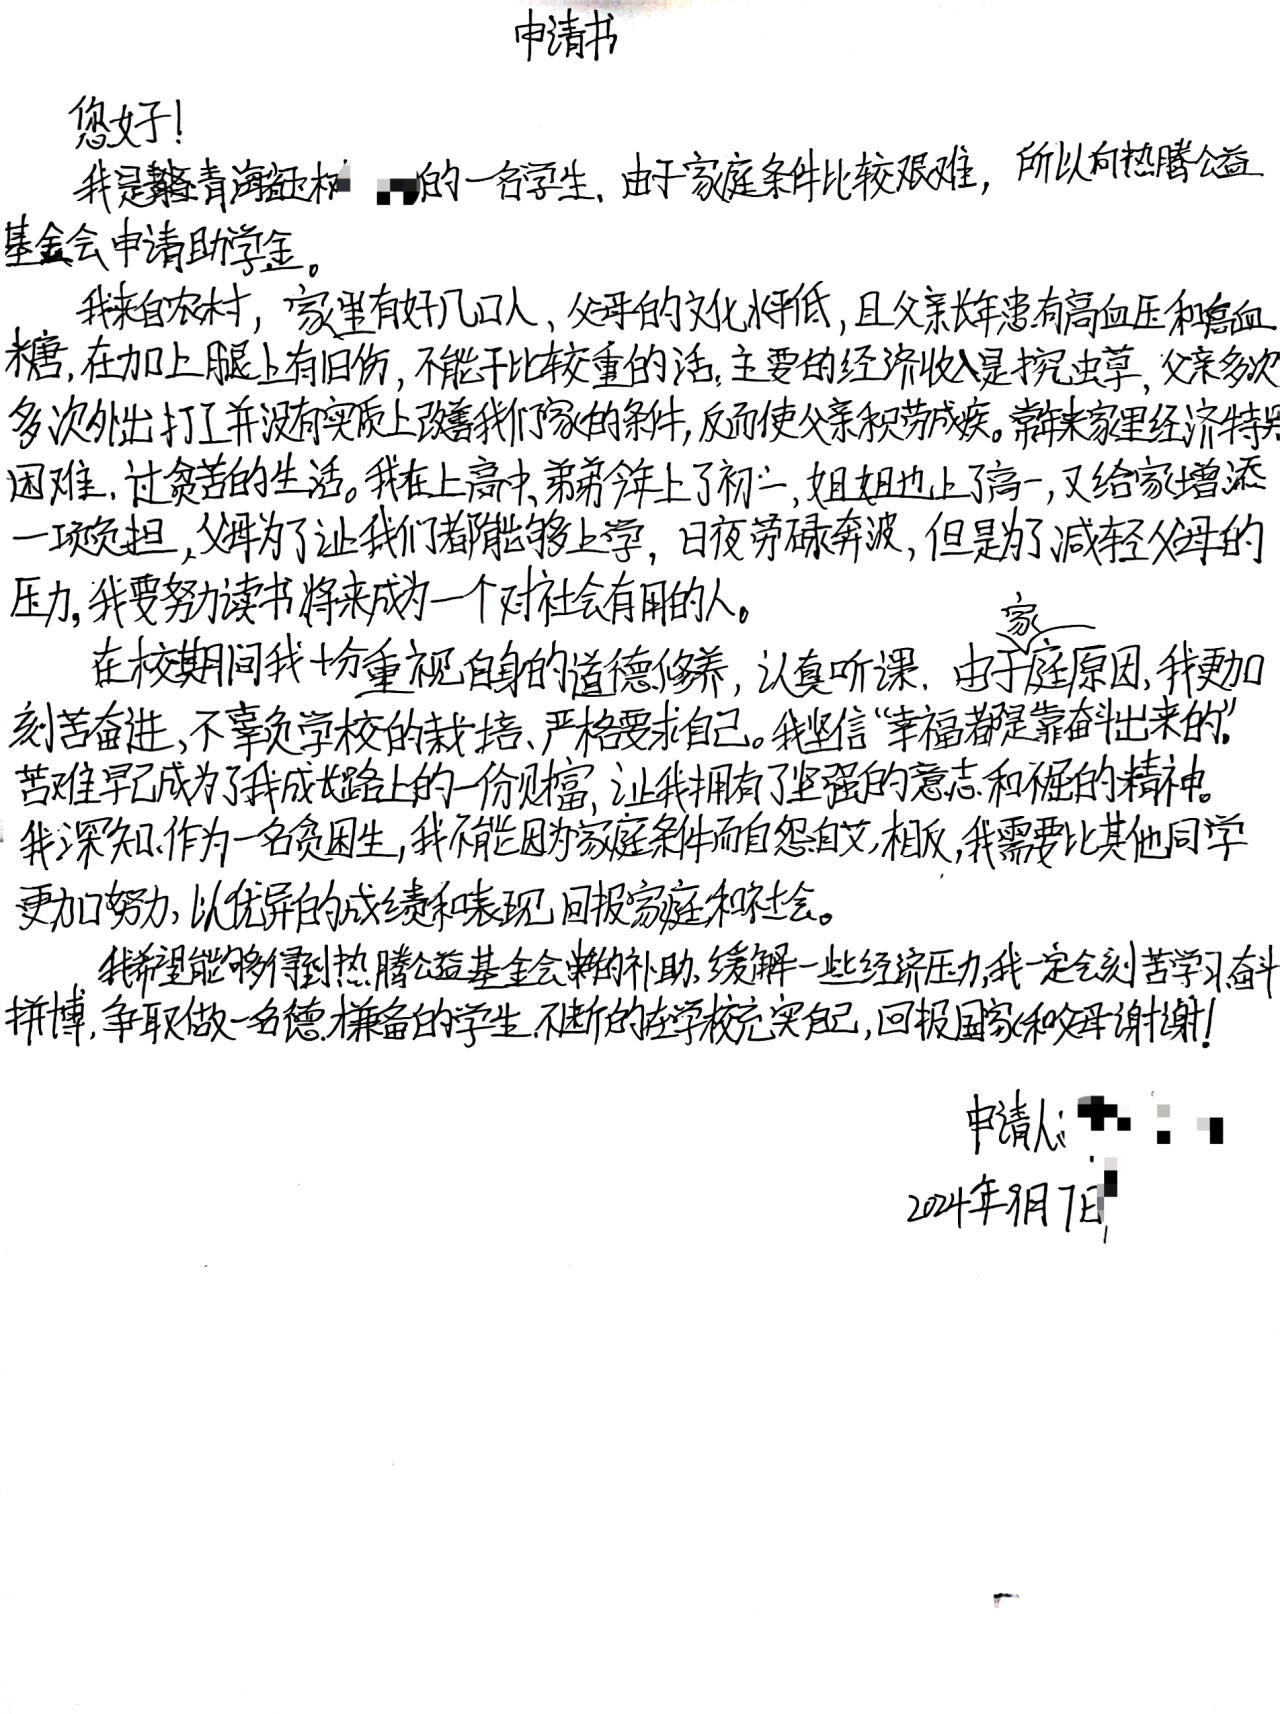 申请书
您好!
我是青海省玉树的一名学生、由于家庭条件比较艰难，所以向热腾公益
基金会申请助学金。
我来自农村，家里有好几口人、父母的文化水平低，且父亲长年患有高血压和高血
糖，在加上腿上有旧伤，不能干比较重的活。主要的经济收入是挖虫草，父亲多次
多次外出打工并没有实质上改善我们家的条件，反而使父亲积劳成疾。常年来家里经济特别
困难、过贫苦的生活。我在上高中、弟弟今年上了初一，姐姐也上了高一，又给家增添
一项负担，父母为了让我们都能够上学，日夜劳碌奔波，但是为了减轻父母的
压力，我要努力读书将来成为一个对社会有用的人。
在校期间我十分重视自身的道德修养，认真听课、由于家庭原因、我更加
刻苦奋进，不辜负学校的栽培、严格要求自己。我坚信“幸福都是靠奋斗出来的”。
苦难早已成为了我成长路上的一份财富，让我拥有了坚强的意志和倔的精神。
我深知、作为一名贫困生，我不能因为家庭条件而自怨自艾，相反，我需要比其他同学
更加努力，以优异的成绩和表现回报家庭和社会。
我希望能够得到热腾公益基金会的补助、缓解一些经济压力，我一定会刻苦学习、奋斗
拼搏，争取做一名德才兼备的学生、不断的在学校充实自己，回报国家和父母谢谢!
申请人:
2024年9月7日